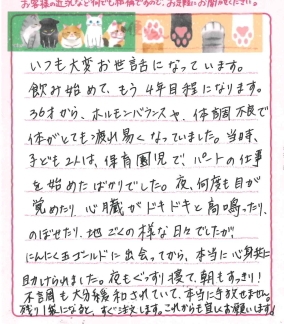 お客様の近況など何でも結構ですので、お気軽にお聞かせください。
いつも大変お世話になっています。
飲み始めて、もう4年目程になります。
36才から、ホルモンバランスや、体調不良で
体がとても疲れ易くなっていました。当時、
子ども2人は、保育園児で、パートの仕事
を始めたばかりでした。夜、何度も目が
覚めたり、心臓がドキドキと高鳴ったり、
のぼせたり、地ごくの様な日々でしたが
にんにく玉ゴールドに出会ってから、本当に心身共に
助けられました。夜もぐっすり寝て、朝もすっきり!
不調も大分緩和されていて、本当に手放せません。
残り1袋になると、すぐ注文します。これからも宜しくお願いします。